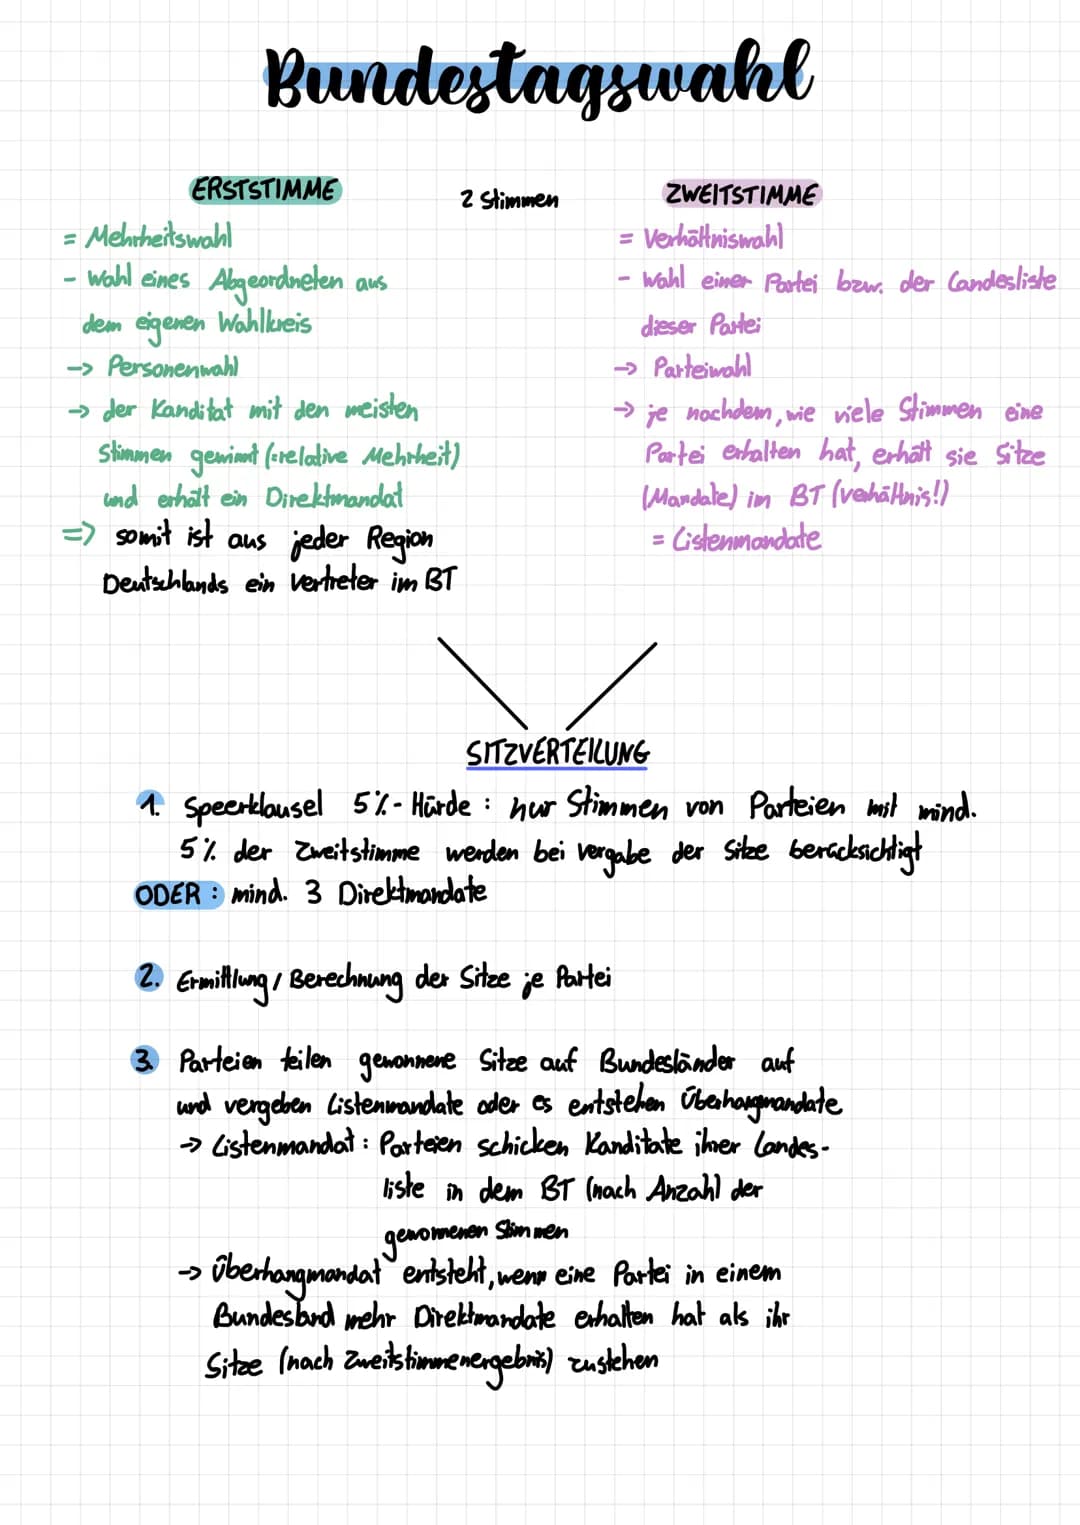 Bundestagswahl
ERSTSTIMME
= Mehrheitswahl
- Wahl eines Abgeordneten aus
dem eigenen Wahlkreis
-> Personenwahl
-> der Kanditat mit den meisten
Stimmen gewinnt (=relative Mehrheit)
und erhält ein Direktmandat
=> somit ist aus jeder Region
Deutschlands ein Vertreter im BT
2 Stimmen
ZWEITSTIMME
= Verhältniswahl
- Wahl einer Partei bzw. der Landesliste
dieser Partei
-> Parteiwahl
-> je nachdem, wie viele Stimmen eine
Partei erhalten hat, erhält sie Sitze
(Mandate) im BT (verhältnis!)
= Listenmandate
SITZVERTEILUNG
1. Speerklausel 5%- Hürde : nur Stimmen von Parteien mit mind.
5% der Zweitstimme werden bei vergabe der Sitze berücksichtigt
ODER : mind. 3 Direktmandate
2. Ermittlung / Berechnung der Sitze je Partei
3 Parteien teilen gewonnene Sitze auf Bundesländer auf
und vergeben Listenmandate oder es entstehen Überhangmandate
-> Listenmandat : Parteien schicken Kanditate ihrer Landes-
liste in dem BT (nach Anzahl der
gewonnenen Stimmen
-> Überhangmandat entsteht, wenn eine Partei in einem
Bundesland mehr Direktmandate erhalten hat als ihr
Sitze (nach Zweitstimmenergebnis) zustehen